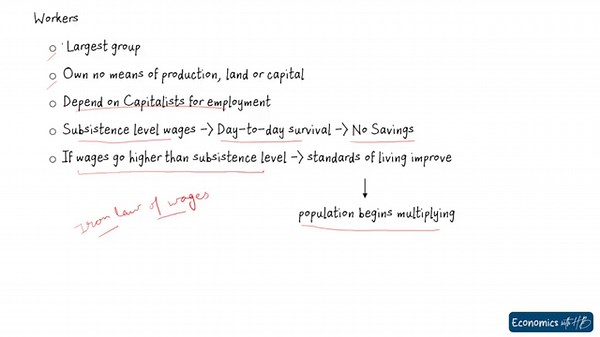 Workers
Largest group
Own no means of production, land or capital
Depend on Capitalists for employment
Subsistence level wages -> Day-to-day survival -> No Savings
If wages go higher than subsistence level -> standards of living improve
Iron law of wages
population begins multiplying
Economics with HB